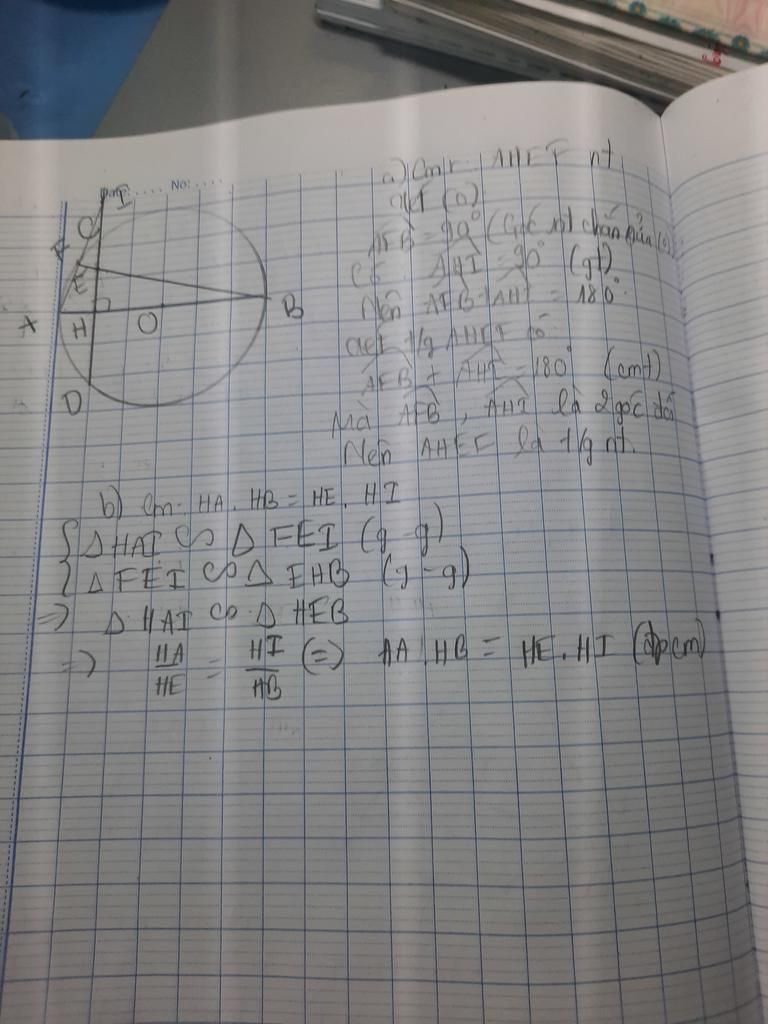 No:
I
C
F
E
A
H
O
B
D
a) Cmr: AHEF nt
Xét (O)
AFB = 90° (Góc nt chắn nửa (O)
Có AHI = 90° (gt)
Nên AFB + AHI = 180°
Xét t/g AHEF có
AFB + AHI = 180° (cmt)
Mà AFB, AHI là 2 góc đối
Nên AHEF là t/g nt.
b) Cm: HA. HB = HE. HI
{ Δ HAI ∽ Δ FEI (g-g)
Δ FEI ∽ Δ EHB (g-g)
=> Δ HAI ∽ Δ HEB
=> HA/HE = HI/HB (=) HA. HB = HE. HI (đpcm)